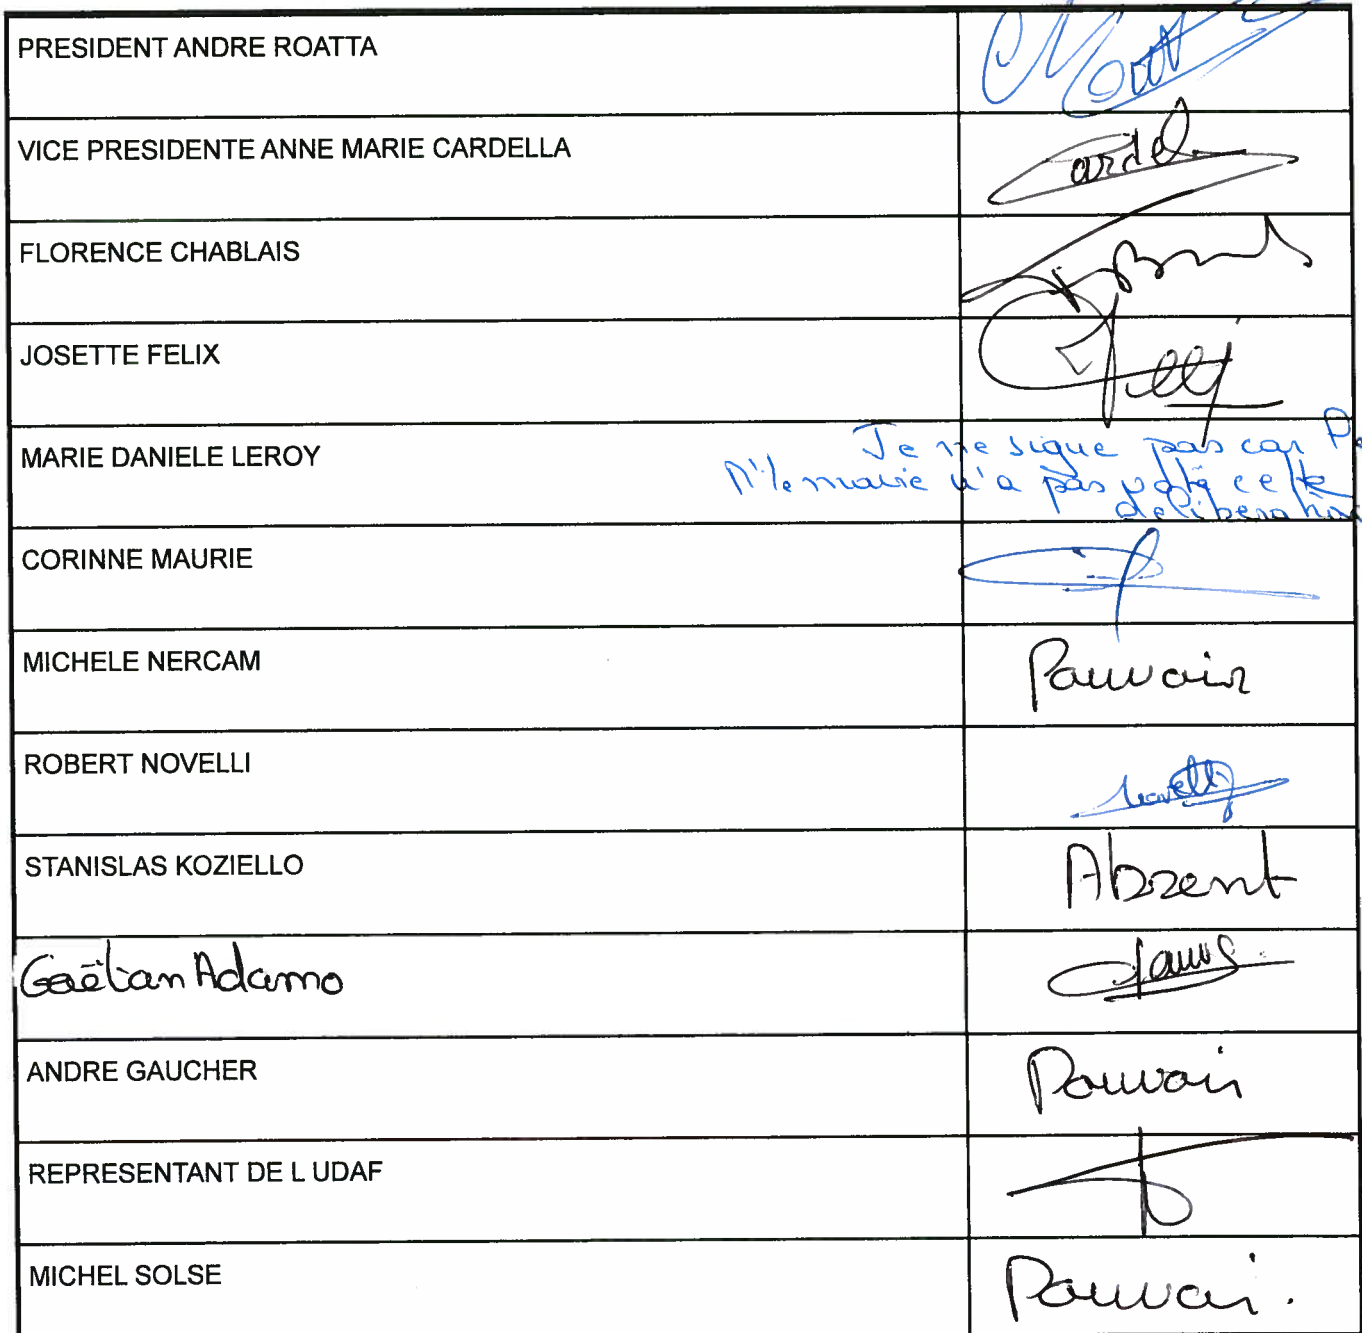 PRESIDENT ANDRE ROATTA
VICE PRESIDENTE ANNE MARIE CARDELLA
Cardel
FLORENCE CHABLAIS
JOSETTE FELIX
MARIE DANIELE LEROY
Je ne signe pas car
n'a pas voté cette
deliberation
CORINNE MAURIE
MICHELE NERCAM
Pouvoir
ROBERT NOVELLI
Novelli
STANISLAS KOZIELLO
Absent
Gaëtan Adamo
ANDRE GAUCHER
Pouvoir
REPRESENTANT DE L UDAF
MICHEL SOLSE
Pouvoir.